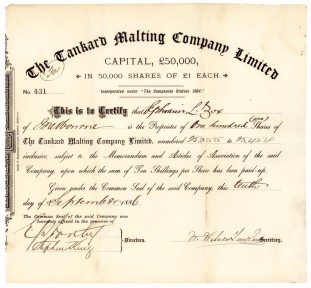 The Tankard Malting Company Limited
CAPITAL, £50,000,
IN 50,000 SHARES OF £1 EACH.
Incorporated under "The Companies Statute 1864."
No. 431
This is to Certify that Ephraim L. Zox
of Melbourne is the Proprietor of One hundred Shares of
The Tankard Malting Company Limited, numbered to
inclusive, subject to the Memorandum and Articles of Association of the said
Company, upon which the sum of Ten Shillings per Share has been paid up.
Given under the Common Seal of the said Company, this tenth
day of September 1886
The Common Seal of the said Company was
hereunto affixed in the presence of
Directors.
Secretary.